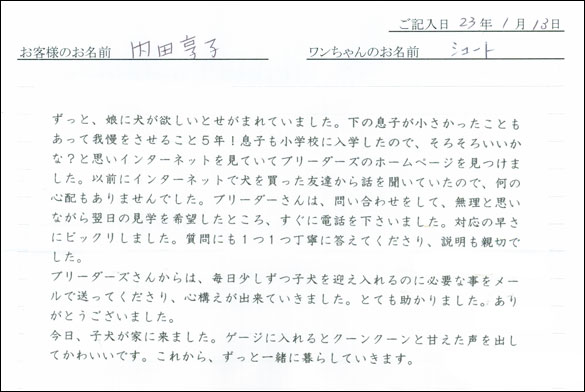 ご記入日 23年 1月 13日
お客様のお名前 内田享子 ワンちゃんのお名前 ショート
ずっと、娘に犬が欲しいとせがまれていました。下の息子が小さかったことも
あって我慢をさせること5年！息子も小学校に入学したので、そろそろいいか
な？と思いインターネットを見ていてブリーダーズのホームページを見つけま
した。以前にインターネットで犬を買った友達から話を聞いていたので、何の
心配もありませんでした。ブリーダーさんは、問い合わせをして、無理と思い
ながら翌日の見学を希望したところ、すぐに電話を下さいました。対応の早さ
にビックリしました。質問にも1つ1つ丁寧に答えてくださり、説明も親切で
した。
ブリーダーズさんからは、毎日少しずつ子犬を迎え入れるのに必要な事をメー
ルで送ってくださり、心構えが出来ていきました。とても助かりました。あり
がとうございました。
今日、子犬が家に来ました。ゲージに入れるとクーンクーンと甘えた声を出し
てかわいいです。これから、ずっと一緒に暮らしていきます。